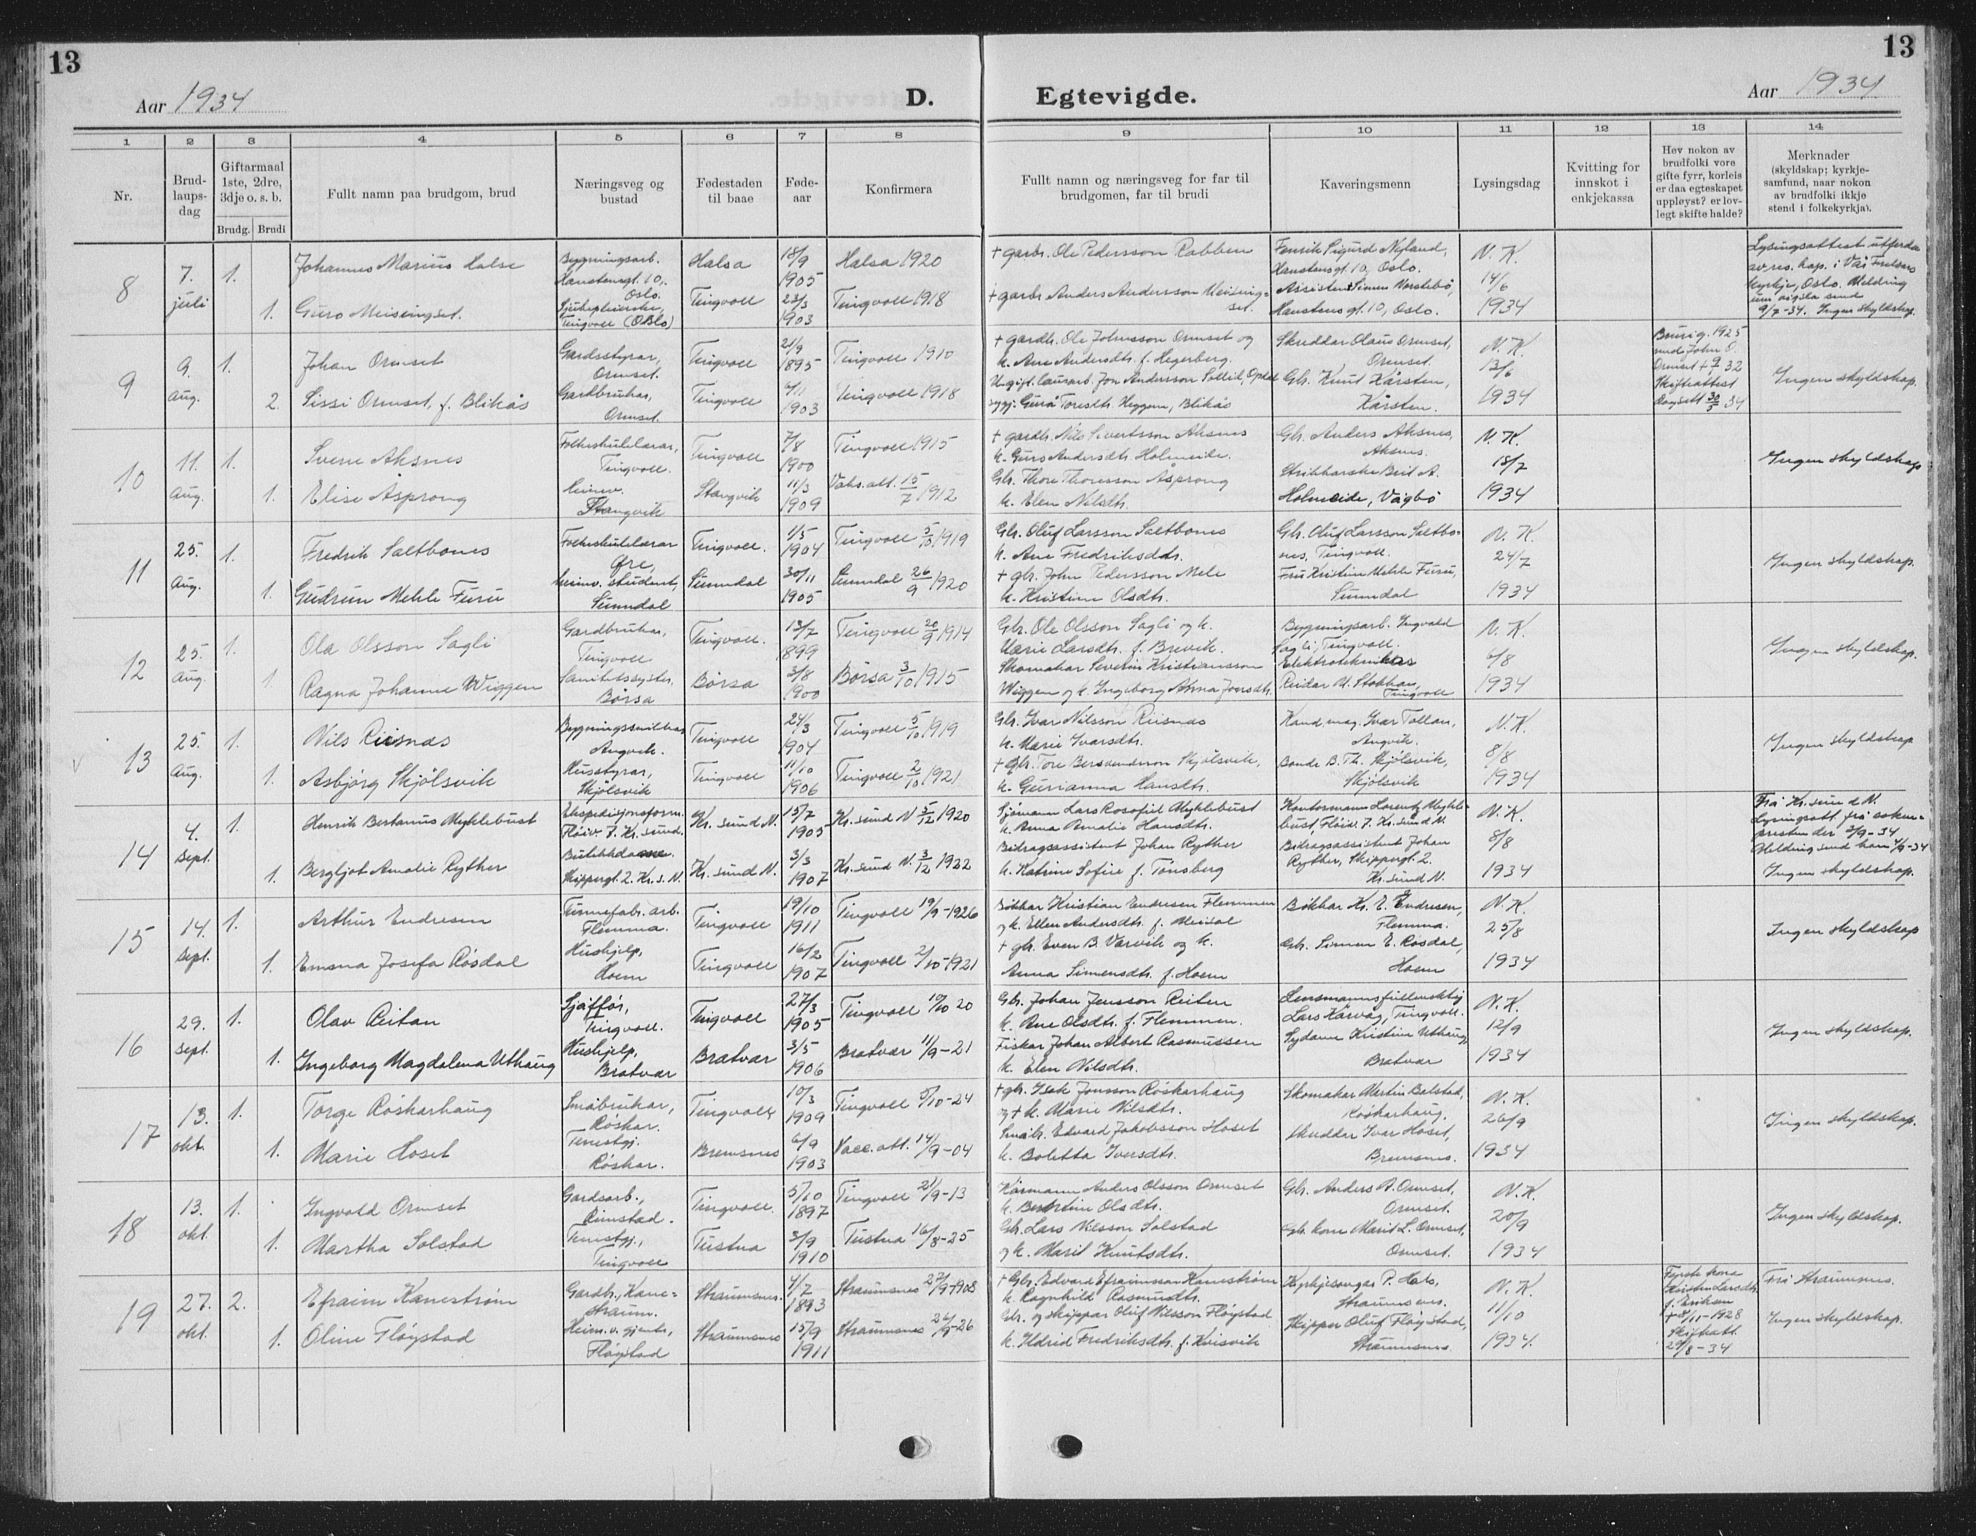 13
Aar 1934
D.
Egtevigde.
Aar 1934
13
1 2 3 4 5 6 7 8 9 10 11 12 13 14
Nr.
Brud-
laups-
dag
Giftarmaal
1ste, 2dre,
3dje o. s. b.
Brudg. Brudi
Fullt namn paa brudgom, brud
Næringsveg og
bustad
Fødestaden
til baae
Føde-
aar
Konfirmera
Fullt namn og næringsveg for far til
brudgomen, far til brudi
Kaveringsmenn
Lysingsdag
Kvitting for
innskot i
enkjekassa
Hev nokon av
brudfolki vore
gifte fyrr, korleis
er daa egteskapet
uppløyst? er lov-
legt skifte halde?
Merknader
(skyldskap; kyrkje-
samfund, naar nokon
av brudfolki ikkje
stend i folkekyrkja).
8
7. juli
1.
Johannes Marius Halse
Bygningsarb.
Hanstensgt. 10, Oslo.
Halsa
18/9 1905
Halsa 1920
+ gardbr. Ole Pedersson Rabben
Henrik Sigurd Nyland,
Hanstensgt 10, Oslo.
N. K.
14/6
1934
1.
Guro Meisingset.
Sjukepleierske,
Tingvoll (Oslo)
Tingvoll
23/3 1903
Tingvoll 1918
+ gardbr. Anders Andersson Meising-
set.
Assistent Simen Vorstebö,
Hanstens gt. 10, Oslo.
Lysingsattest utferda
av res. kap. i Vår Frelsers
kyrkje, Oslo. Melding
um vigsla send
9/7-34. Ingen skyldskap.
9
9. Aug.
1.
Johan Ormset
Gardsstyrar,
Ormset.
Tingvoll
21/9 1895
Tingvoll 1910
+ gardbr. Ole Johnsson Ormset og
k. Ane Andersdtr. f. Hegerberg.
Skreddar Olaus Ormset,
Ormset.
N. K.
13/6
1934
2.
Sissi Ormset, f. Blikås
Gardbrukar,
Ormset.
Tingvoll
1903
Tingvoll 1918
Ugift lausarb. Jon Andersson
Toresdtr. Heggem, Blikås
Gbr. Knut Kårsten,
Kårsten.
Brurig. 1925
med John O.
Ormset + 9/7 32
Skifteattest
30/5 34
Ingen skyldskap.
10
11. Aug.
1.
Sverre Aksnes
Folkeskulelærar,
Tingvoll.
Tingvoll
7/8 1900
Tingvoll 1915
+ gardbr. Nils Sivertsson Aksnes
k. Guro Andersdtr. Holmeide.
Gbr. Anders Aksnes,
Aksnes.
N. K.
18/7
1934
1.
Elise Asprong
Heimv.
Stangvik
Stangvik
11/3 1909
Vaks. att. 15/7 1912
Gbr. Thore Thoresson Asprong
k. Elen Nilsdtr.
Strikkerske Berit A.
Holmeide, Vågbö
Ingen skyldskap
11
25. Aug.
1.
Fredrik Saltbones
Folkeskulelærar
Øre,
Tingvoll.
1/5 1904
Tingvoll 5/10 1919
Gbr. Oluf Larsson Saltbones
k. Ane Fredriksdtr.
Gbr. Oluf Larsson Saltbo-
nes, Tingvoll.
N. K.
24/7
1934
1.
Gudrun Mehle Furu
heimv. student,
Sunndal
Sunndal
30/11 1905
Sunndal 26/9 1920
+ gbr. John Pedersson Mele
k. Kristine Olsdtr.
Fru Kristine Mehle Furu,
Sunndal
Ingen skyldskap.
12
25. Aug.
1.
Ola Olsson Sagli
Gardbrukar,
Tingvoll
Tingvoll.
13/7 1899
Tingvoll 20/9 1914
Gbr. Ole Olsson Sagli og k.
Marie Larsdtr. f. Brevik.
Bygningsarb. Ingvald
Sagli, Tingvoll.
N. K.
6/8
1934
1
Ragna Johanne Wiggen
Sanitetssyster,
Börsa
Börsa
3/8 1900
Börsa 3/10 1915
Skomakar Severin Kristiansson
Wiggen og k. Ingeborg Anna Jonsdtr.
Elektrotekniker
Reidar U. Stokkan,
Tingvoll
Ingen skyldskap.
13
25. Aug.
1.
Nils Riisnæs
Bygningssnikkar
Angvik.
Tingvoll
24/3 1904
Tingvoll 5/10 1919
Gbr. Ivar Nilsson Riisnæs
k. Marie Ivarsdtr.
Kand. mag. Ivar Tollan,
Angvik.
N. K.
8/8
1934
1.
Asbjörg Skjölsvik
Husstyrar,
Skjölsvik
Tingvoll
11/10 1906
Tingvoll 2/10 1921
+ Gbr. Tore Bersvendsson Skjölsvik,
k. Gurianna Hansdtr.
Bonde B. Th. Skjölsvik,
Skjölsvik
Ingen skyldskap
14
4. Sept.
1.
Henrik Bertanus Myklebust
Ekspedisjonsform.
Flöiv. 7. Kr. sund.
Kr. sund N.
15/7 1905
Kr. sund N 5/12 1920
Sjömann Lars Rosofiel Myklebust
k. Anna Amalie Hansdtr.
Kontormann Lorentz Mykle-
bust, Flöiv. 7. Kr. sund N.
N. K.
8/8
1934
1.
Bergljot Amalie Ryther
Butikkdame.
Skippergt. 2. Kr. s. N.
Kr. sund N.
3/3 1907
Kr. sund N. 3/12 1922
Bidragsassistent Johan Ryther
k. Katrine Sofie f. Tönsberg
Bidragsassistent Johan
Ryther, Skippergt. 2.
Kr. sund N.
Frå Kr. sund N.
Lysingsatt. frå sokne-
presten der 3/9-34
Melding send ham 4/9-34
Ingen skyldskap.
15
14. Sept.
1.
Arthur Endresen
Tunnefabr. arb.
Flemma.
Tingvoll
19/10 1911
Tingvoll 19/9-1926
Bökkar Kristian Endresen Flemmen
og k. Ellen Andersdtr. f. Meisal
Bökkar Kr. E. Endresen,
Flemma.
N. K.
25/8
1934
1.
Emma Josefa Rösdal
Hushjelp,
Hoem
Tingvoll
16/2 1907
Tingvoll 2/10-1921
+ gbr. Even B. Varvik og k.
Anna Simensdtr. f. Hoem
Gbr. Simen E. Rösdal,
Hoem
Ingen skyldskap
16
29. Sept.
1.
Olav Reitan
Sjåfför,
Tingvoll.
Tingvoll
27/3 1905
Tingvoll 10/10 20
Gbr. Johan Jensson Reiten
k. Ane Olsdtr. f. Flemmen.
Lensmannsfullmektig
Lars Kårvåg, Tingvoll.
N. K.
12/9
1934
1.
Ingeborg Magdalena Uthaug
Hushjelp,
Bratvær
Bratvær
3/5 1906
Bratvær 11/9-21
Fiskar Johan Albert Rasmussen
k. Elen Nilsdtr.
Sydame Kristine Uthaug,
Bratvær
Ingen skyldskap.
17
13. okt.
1.
Torge Röskarhaug
Småbrukar,
Röskar.
Tingvoll
10/3 1909
Tingvoll 5/10-24
+ gbr. Isak Jonsson Röskarhaug
og + k. Marie Nilsdtr.
Skomakar Martin Bolstad,
Röskarhaug.
N. K.
26/9
1934
1.
Marie Hoset
Tenestgj.
Röskar.
Bremsnes
6/9 1903
Vacc. att. 14/9-04
Småbr. Edvard Jakobsson Hoset
k. Boletta Iversdtr.
Skreddar Ivar Hoset,
Bremsnes.
Ingen skyldskap.
18
13. okt.
1.
Ingvald Ormset
Gardsarb.,
Rimstad.
Tingvoll
5/10 1897
Tingvoll 21/9-13
Kårmann Anders Olsson Ormset
k. Berntine Olsdtr.
Gbr. Anders A. Ormset,
Ormset.
N. K.
20/9
1934
1.
Martha Solstad
Tenestgj.,
Tingvoll
Tustna
3/9 1910
Tustna 16/8-25
Gbr. Lars Nilsson Solstad
og k. Marit Knutsdtr.
Gbr. kone Marit L. Ormset,
Ormset.
Ingen skyldskap.
19
27. okt.
2.
Efraim Kanestrøm
Gardbr., Kane-
straum.
Straumsnes.
4/7 1893
Straumsnes 27/9-1908
+ Gbr. Edvard Efraimsson Kanestrøm
k. Ragnhild Rasmusdtr.
Kyrkjesongar P. Hals,
Straumsnes.
N. K.
11/10
1934.
1.
Oline Fløystad
Heimev. gjente,
Fløystad
Straumsnes
15/9 1911
Straumsnes 26/9-26
Gbr. og skippar Oluf Nilsson Fløystad
k. Ildrid Fredriksdtr. f. Kvisvik
Skipper Oluf Fløystad,
Straumsnes.
Fyrste kona
Kirsten Larsdtr.
f. Eriksen
+ 8/11-1928
Skifteatt.
29/8-34
Frå Straumsnes.
Ingen skyldskap.